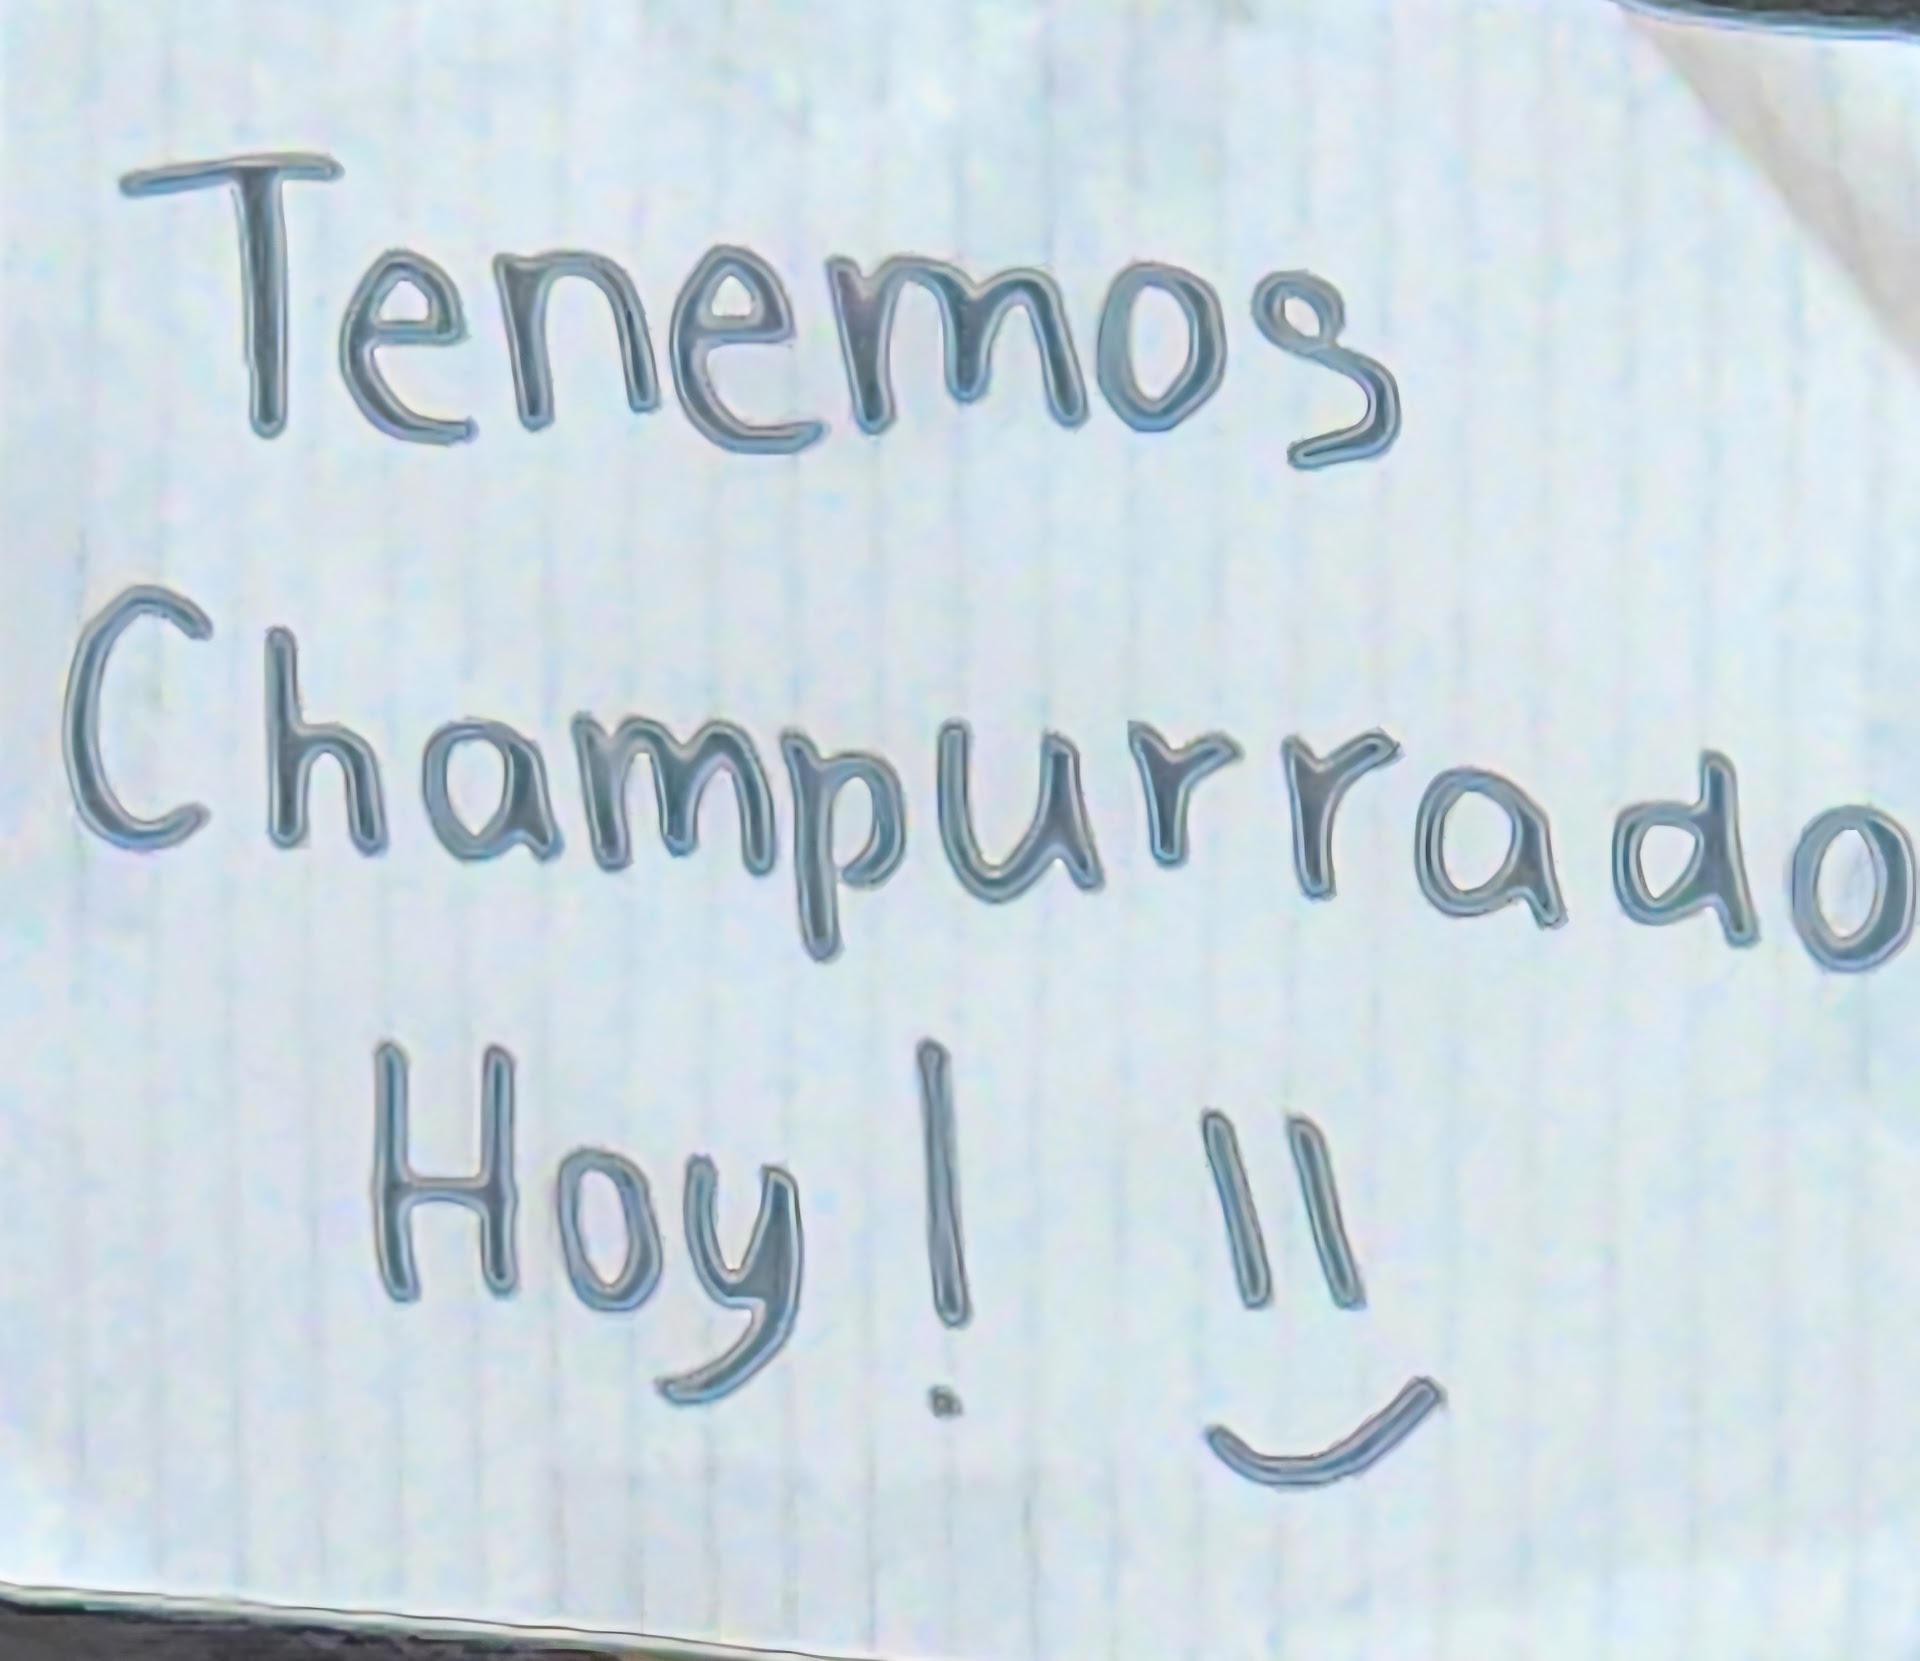 Tenemos
Champurrado
Hoy!